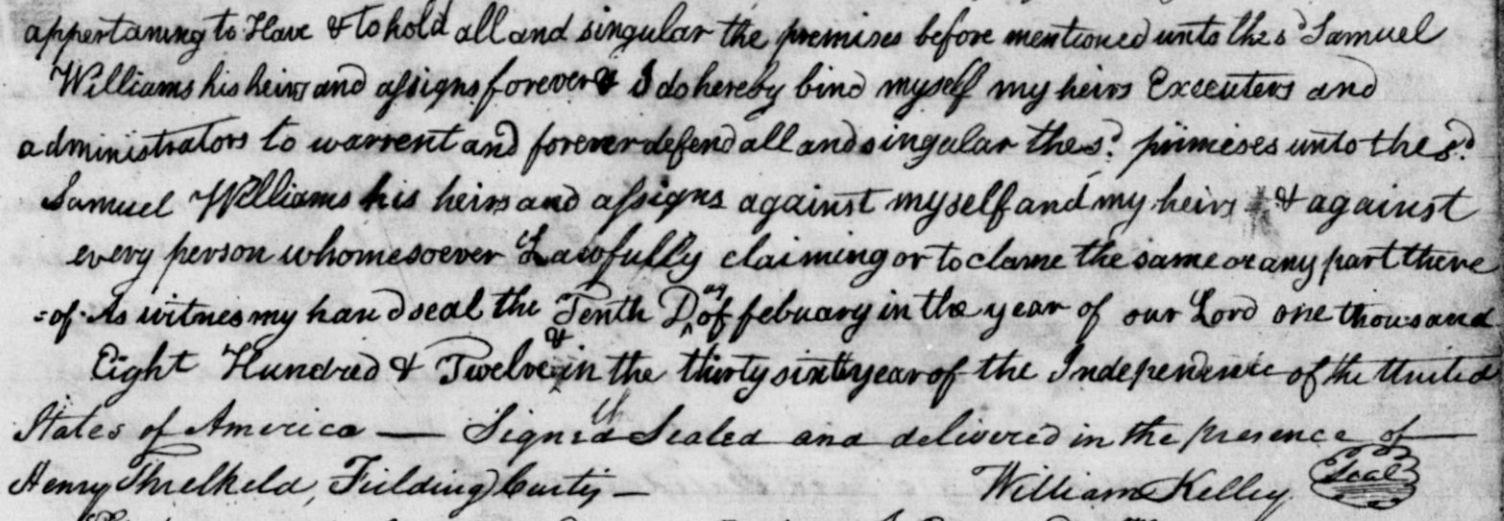 appertaning to Have & to hold all and singular the premises before mentioned unto the sd Samuel
Williams his heirs and assigns forever & I do hereby bind myself my heirs Executers and
administrators to warrent and forever defend all and singular the sd. primeses unto the sd.
Samuel Williams his heirs and assigns against myself and my heirs & against
every person whomesoever Lawfully claiming or to clame the same or any part there
=of. As witnes my hand seal the Tenth Day of febuary in the year of our Lord one thousand
Eight Hundred & Twelve & in the thirty sixth year of the Independence of the United
States of America — Signed Sealed and delivered in the presence of
Henry Threlkeld, Fielding Curtis — William Kelley Seal